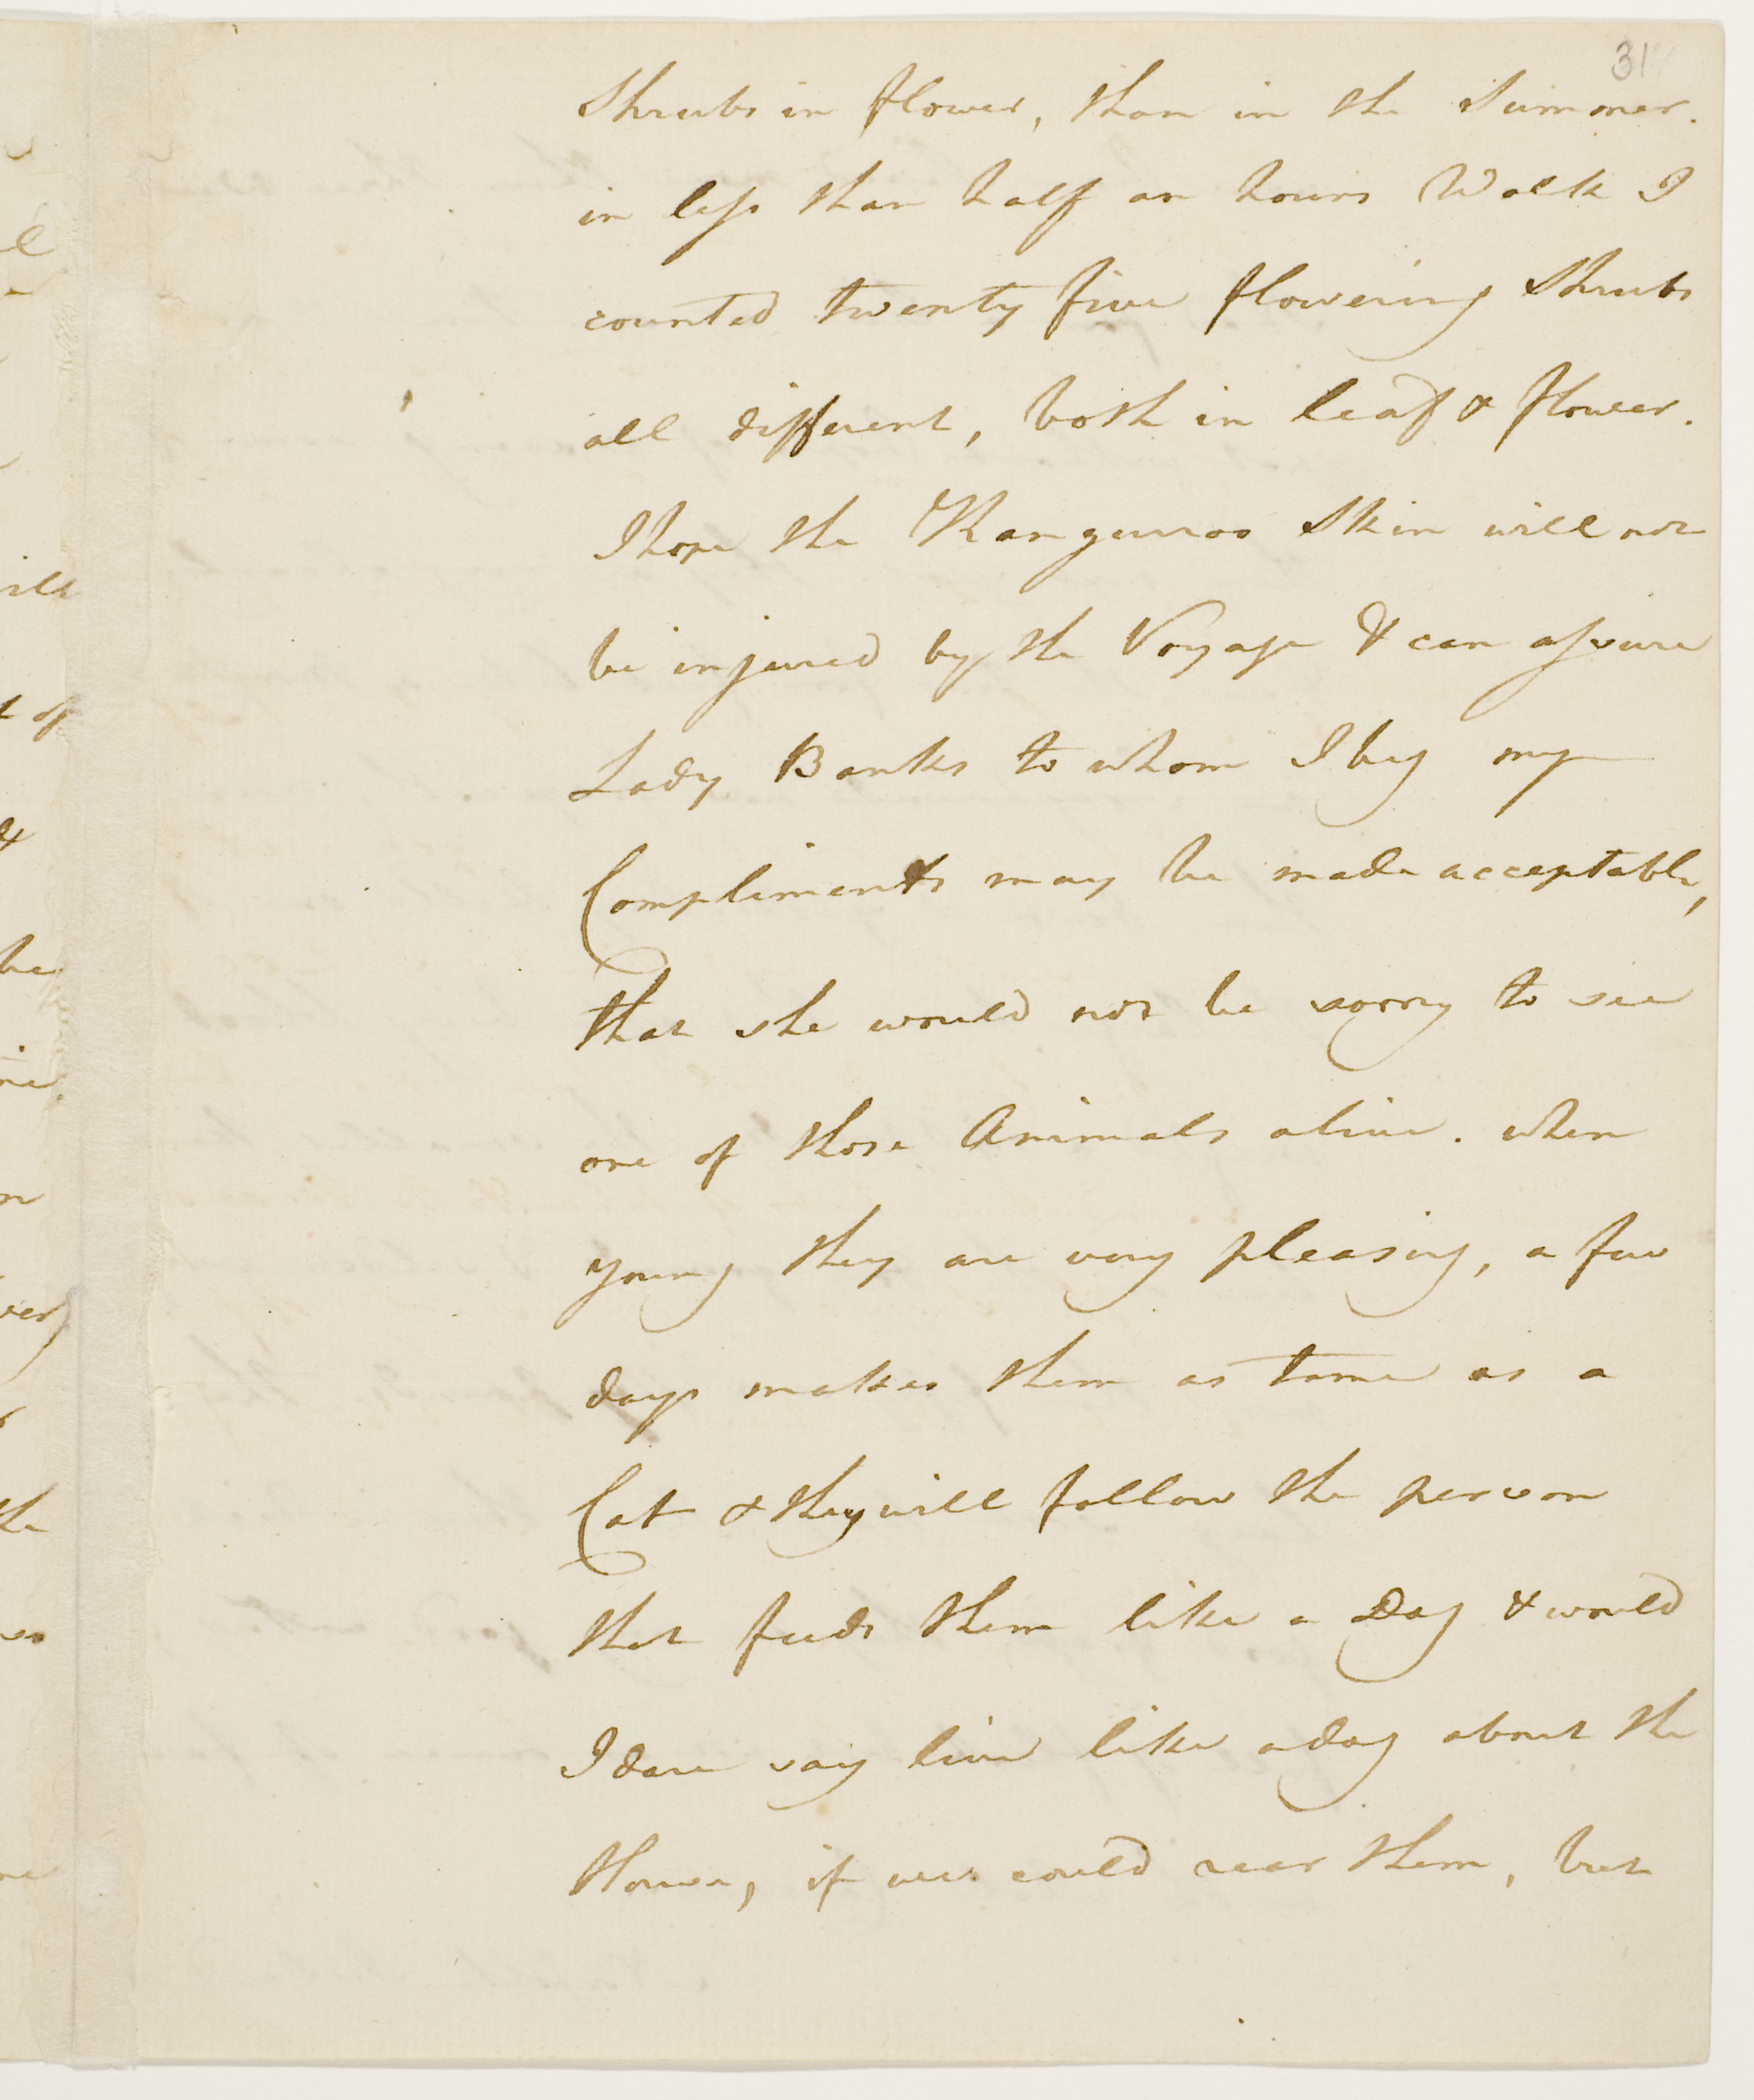 31
Shrubs in flower, than in the Summer.
in less than half an hours Walk I
counted twenty five flowering Shrubs
all different, both in leaf & flower.
I hope the Kanguroo Skin will not
be injured by the Voyage & can assure
Lady Banks to whom I beg my
Compliments may be made acceptable,
that she would not be sorry to see
one of those Animals alive. when
young they are very pleasing, a few
days makes them as tame as a
Cat & they will follow the person
that feeds them like a Dog & would
I dare say live like a dog about the
House, if we could rear them, but